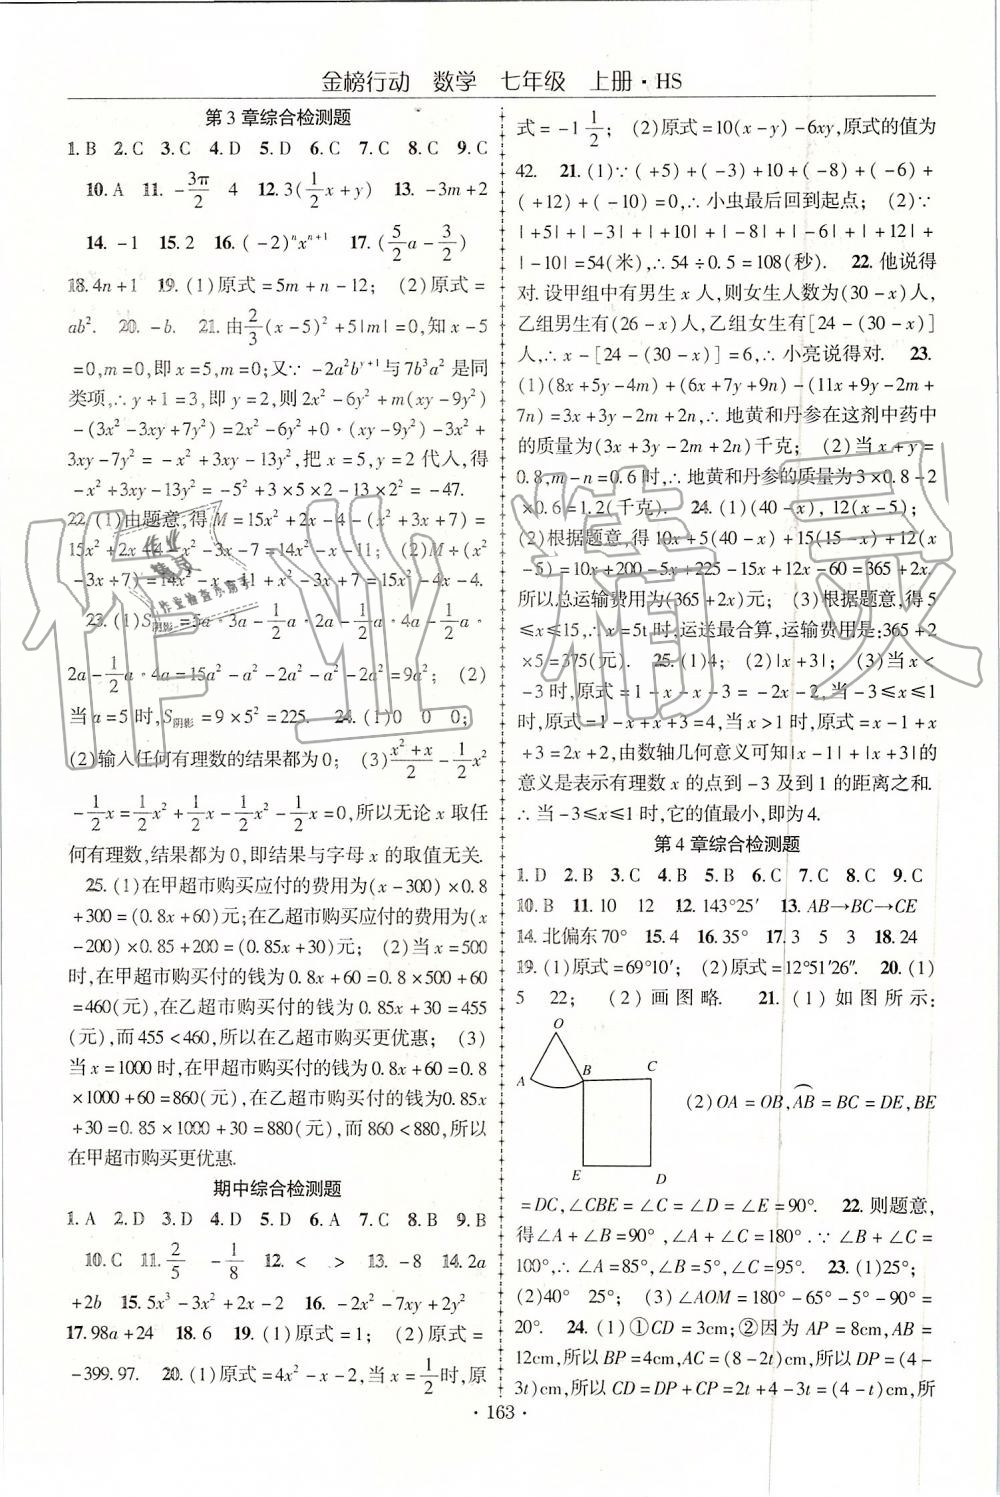 金榜行动 数学 七年级 上册·HS
第3章综合检测题
1. B 2. C 3. C 4. D 5. D 6. C 7. C 8. C 9. C
10. A 11. -3π/2 4 12. 3(1/2x+y) 13. -3m+2
14. -1 15. 2 16. (-2)ⁿxⁿ⁺¹ 17. (5/2a-3/2)
18. 4n+1 19. (1)原式=5m+n-12; (2)原式=
ab². 20. -b. 21. 由2/3(x-5)²+5|m|=0,知x-5
=0,m=0,即x=5,m=0;又∵-2a²bʸ⁺¹与7b³a²是同
类项,∴y+1=3,即y=2,则2x²-6y²+m(xy-9y²)
-(3x²-3xy+7y²)=2x²-6y²+0·(xy-9y²)-3x²+
3xy-7y²=-x²+3xy-13y²,把x=5,y=2代人,得
-x²+3xy-13y²=-5²+3×5×2-13×2²=-47.
22. (1)由题意,得M=15x²+2x-4-(x²+3x+7)=
15x²+2x-4-x²-3x-7=14x²-x-11; (2)M+(x²
-3x+7)=14x²-x-11+x²-3x+7=15x²-4x-4.
23. (1)S阴影=5a·3a-1/2a·2a-1/2a·
2a-1/2a·4a=15a²-a²-2a²-a²-2a²=9a²; (2)
当a=5时,S阴影=9×5²=225. 24. (1)0 0 0;
(2)输入任何有理数的结果都为0; (3)(x²+x)/2-1/2x²
-1/2x=1/2x²+1/2x-1/2x²-1/2x=0,所以无论x取任
何有理数,结果都为0,即结果与字母x的取值无关.
25. (1)在甲超市购买应付的费用为(x-300)×0.8
+300=(0.8x+60)元;在乙超市购买应付的费用为(x
-200)×0.85+200=(0.85x+30)元; (2)当x=500
时,在甲超市购买付的钱为0.8x+60=0.8×500+60
=460(元),在乙超市购买付的钱为0.85x+30=455
(元),而455<460,所以在乙超市购买更优惠; (3)
当x=1000时,在甲超市购买付的钱为0.8x+60=0.8
×1000+60=860(元),在乙超市购买付的钱为0.85x
+30=0.85×1000+30=880(元),而860<880,所以
在甲超市购买更优惠.
期中综合检测题
1. A 2. D 3. D 4. D 5. D 6. A 7. C 8. B 9. B
10. C 11. 2/5 -1/8 12. < > 13. -8 14. 2a
+2b 15. 5x³-3x²+2x-2 16. -2x²-7xy+2y²
17. 98a+24 18. 6 19. (1)原式=1; (2)原式=
-399.97. 20. (1)原式=4x²-x-2,当x=1/2时,原
式=-1 1/2; (2)原式=10(x-y)-6xy,原式的值为
42. 21. (1)∵(+5)+(-3)+10+(-8)+(-6)+
(+12)+(-10)=0,∴小虫最后回到起点; (2)∵
|+5|+|-3|+|+10|+|-8|+|-6|+|+12|+
|-10|=54(米),∴54÷0.5=108(秒). 22. 他说得
对.设甲组中有男生x人,则女生人数为(30-x)人,
乙组男生有(26-x)人,乙组女生有[24-(30-x)]
人,∴x-[24-(30-x)]=6,∴小亮说得对. 23.
(1)(8x+5y-4m)+(6x+7y+9n)-(11x+9y-2m+
7n)=3x+3y-2m+2n,∴地黄和丹参在这剂中药中
的质量为(3x+3y-2m+2n)千克; (2)当x+y=
0.8,m-n=0.6时,∴地黄和丹参的质量为3×0.8-2
×0.6=1.2(千克). 24. (1)(40-x),12(x-5);
(2)根据题意,得10x+5(40-x)+15(15-x)+12(x
-5)=10x+200-5x+225-15x+12x-60=365+2x.
所以总运输费用为(365+2x)元; (3)根据题意,得5
≤x≤15,∴x=5t时.运送最合算,运输费用是:365+2
×5=375(元). 25. (1)4; (2)|x+3|; (3)当x<
-3时,原式=1-x-x-3=-2x-2,当-3≤x≤1
时,原式=1-x+x+3=4,当x>1时,原式=x-1+x
+3=2x+2,由数轴几何意义可知|x-1|+|x+3|的
意义是表示有理数x的点到-3及到1的距离之和.
∴当-3≤x≤1时,它的值最小,即为4.
第4章综合检测题
1. D 2. B 3. C 4. B 5. B 6. C 7. B 8. C 9. C
10. B 11. 10 12 12. 143°25′ 13. AB→BC→CE
14. 北偏东70° 15. 4 16. 35° 17. 3 5 3 18. 24
19. (1)原式=69°10′; (2)原式=12°51′26″. 20. (1)
5 22; (2)画图略. 21. (1)如图所示:
O
A
B
C
E
D
(2)OA=OB,AB⌒=BC=DE,BE
=DC,∠CBE=∠C=∠D=∠E=90°. 22. 则题意,
得∠A+∠B=90°,∠A+∠C=180°.∵∠B+∠C=
100°,∴∠A=85°,∠B=5°,∠C=95°. 23. (1)25°;
(2)40° 25°; (3)∠AOM=180°-65°-5°-90°=
20°. 24. (1)①CD=3cm;②因为AP=8cm,AB=
12cm,所以BP=4cm,AC=(8-2t)cm,所以DP=(4-
3t)cm,所以CD=DP+CP=2t+4-3t=(4-t)cm,所
·163·
作业精灵
作业
精灵
作业检查杰高手